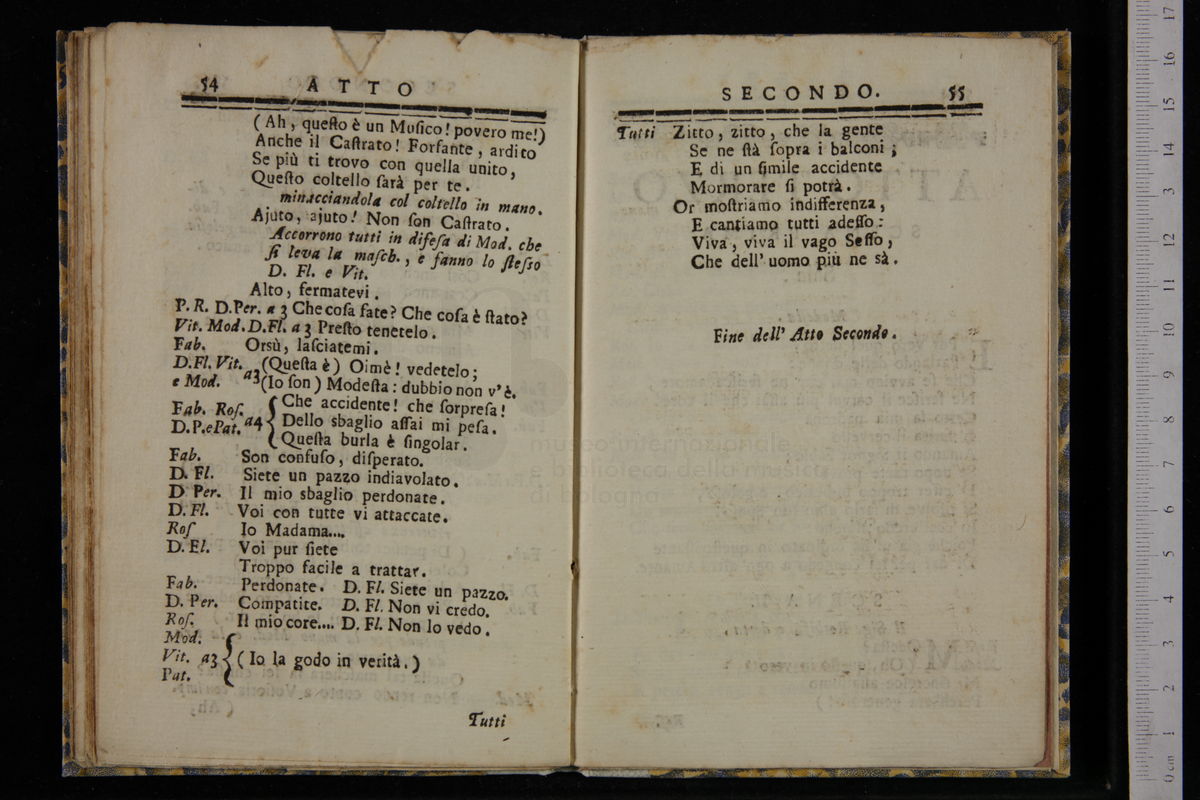 54 ATTO
(Ah, queſto è un Muſico! povero me!)
Anche il Caſtrato! Forfante, ardito
Se più ti trovo con quella unito,
Queſto coltello ſarà per te.
minacciandola col coltello in mano.
Ajuto, ajuto! Non ſon Caſtrato.
Accorrono tutti in difeſa di Mod. che
ſi leva la maſch., e fanno lo ſteſso
D. Fl. e Vit.
Alto, fermatevi.
P. R. D.Per. a 3 Che coſa fate? Che coſa è ſtato?
Vit. Mod. D.Fl. a 3 Preſto tenetelo.
Fab. Orsù, laſciatemi.
D.Fl. Vit. (Queſta è) Oimè! vedetelo;
e Mod. a3 (Io ſon) Modeſta: dubbio non v'è.
Fab. Roſ. Che accidente! che ſorpreſa!
D.P.e Pat. a4 Dello sbaglio aſſai mi peſa.
Queſta burla è ſingolar.
Fab. Son confuſo, diſperato.
D. Fl. Siete un pazzo indiavolato.
D Per. Il mio sbaglio perdonate.
D. Fl. Voi con tutte vi attaccate.
Roſ Io Madama....
D. El. Voi pur ſiete
Troppo facile a trattar.
Fab. Perdonate. D. Fl. Siete un pazzo.
D. Per. Compatite. D. Fl. Non vi credo.
Roſ. Il mio core.... D. Fl. Non lo vedo.
Mod.
Vit. a3 (Io la godo in verità.)
Pat.
Tutti
SECONDO. 55
Tutti Zitto, zitto, che la gente
Se ne ſtà ſopra i balconi;
E di un ſimile accidente
Mormorare ſi potrà.
Or moſtriamo indifferenza,
E cantiamo tutti adeſſo:
Viva, viva il vago Seſſo,
Che dell' uomo più ne sà.
Fine dell' Atto Secondo.
museo internazionale
e biblioteca della musica
di bologna